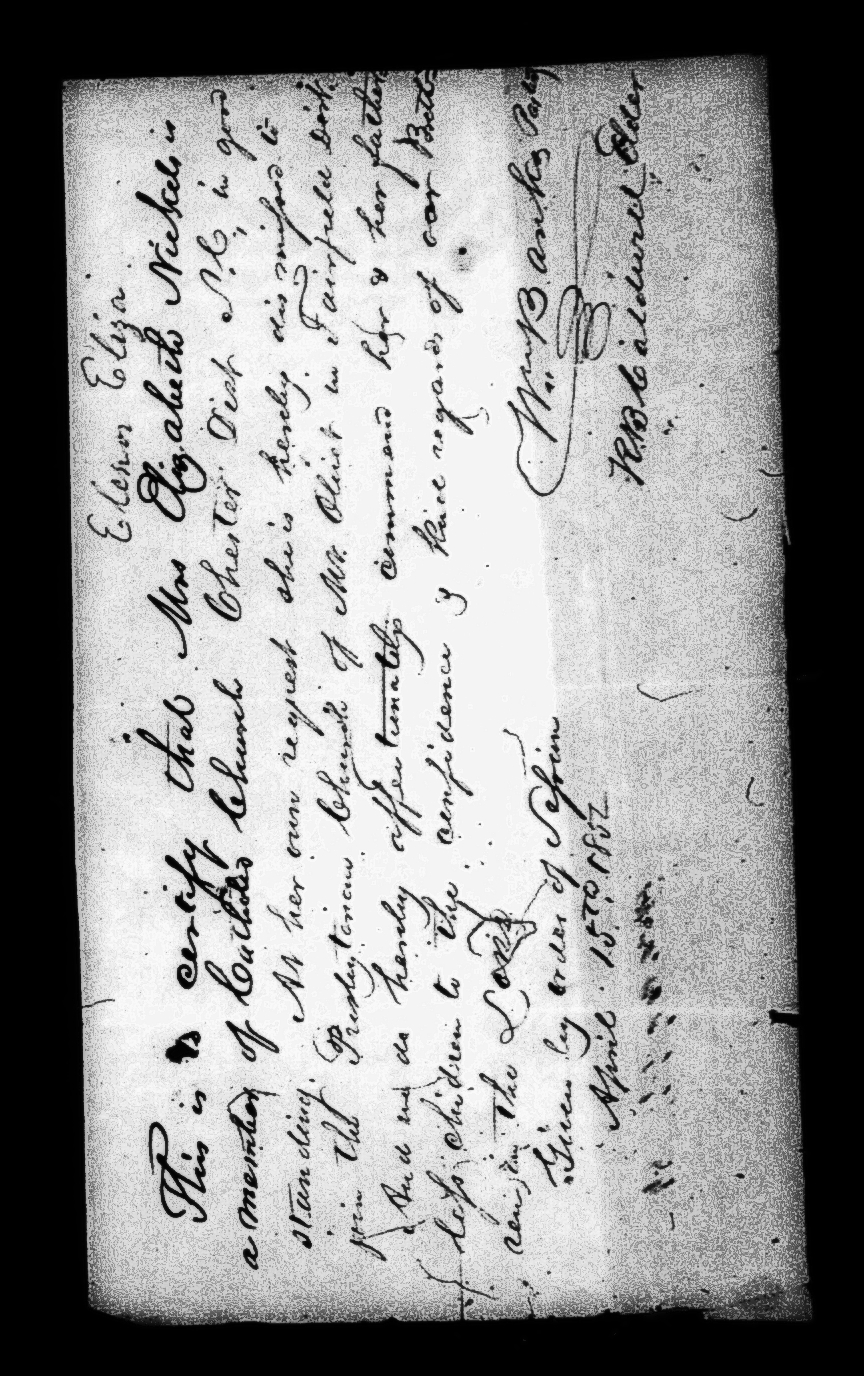 Elenor Eliza
This is to certify that Mrs Elizabeth Nickels is
a member of Catholic Church Chester Dist S.C, in good
standing. At her own reqest she is hereby dismissed to
join the Presbyterian Church of Mt. Olivet in Fairfield Dist.
And we do hereby affectionately commend her & her father
less children to the confidence & kind regards of our Breth-
ren in the Lord
Given by order of Session
April 15th 1852
Wm Banks Pastor
R.B Caldwell Elder